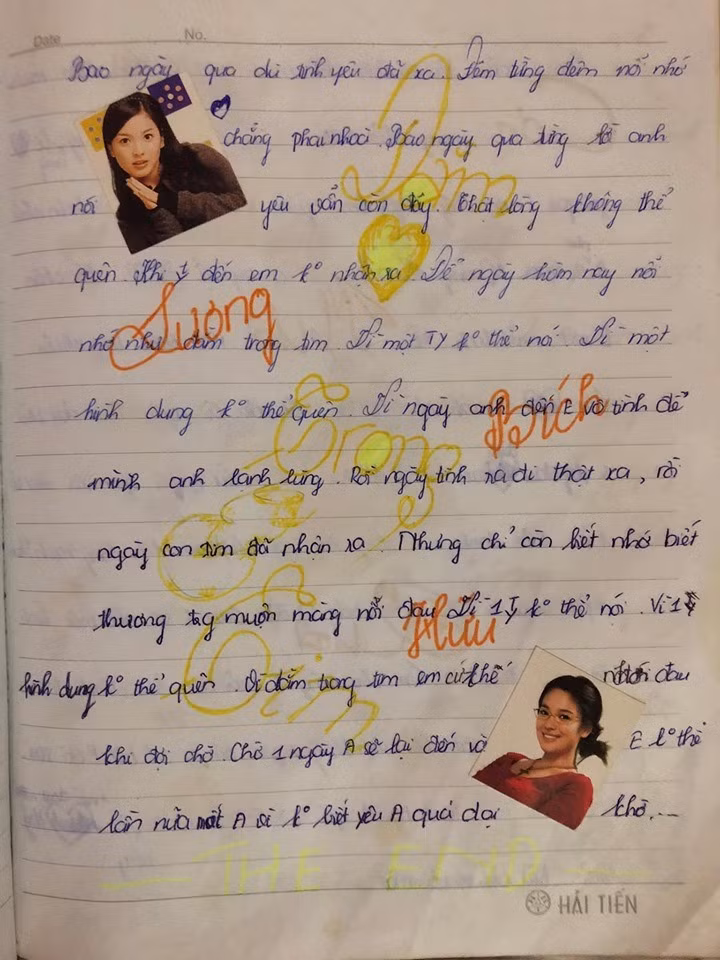 Date No.
Bao ngày qua dù tình yêu đã xa. Đêm từng đêm nỗi nhớ
chẳng phai nhoà. Bao ngày qua từng lời anh
nói yêu vẫn còn đây. Thật lòng không thể
quên. Khi ty đến em k° nhận ra. Để ngày hôm nay nỗi
nhớ như đâm trong tim. Vì một Ty k° thể nói. Vì một
hình dung k° thể quên. Vì ngày anh đến E vô tình để
mình anh lạnh lùng. Rồi ngày tình ra đi thật xa, rồi
ngày con tim đã nhận ra. Nhưng chỉ còn biết nhớ biết
thương trg muộn màng nỗi đau. Vì 1 Ty k° thể nói. Vì 1
hình dung k° thể quên. Vì đắm trong tim em cứ thế nhói đau
khi đợi chờ. Chờ 1 ngày A sẽ lại đến và E k° thể
lần nữa mất A vì k° biết yêu A quá dại khờ...
Đắm
Trong
Tim
Lương
Bích
Hữu
THE END
HẢI TIẾN